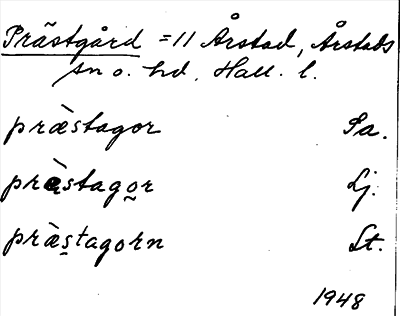 Prästgård = 11 Årstad, Årstads
sn o. hd. Hall. l.
præ̀stagor Sa.
præ̀stago̠r Lj.
præ̀s̠tagorn St.
1948